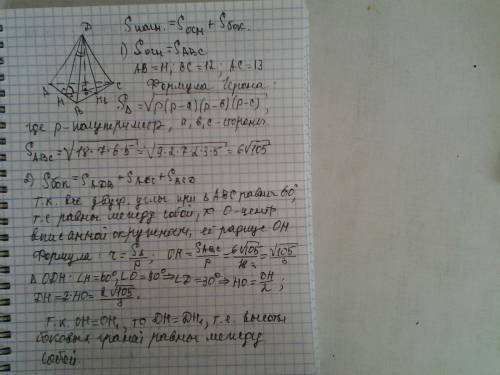 Sполн. = Sосн + Sбок.
1) Sосн = SABC
AB = 11; BC = 12; AC = 13
Формула Герона:
SΔ = √p(p-a)(p-b)(p-c),
где p-полупериметр, a, b, c-стороны.
SABC = √18·7·6·5 = √9·2·7·2·3·5 = 6√105
2) Sбок = SADB + + SACD
Т.к. все двугр. углы при ΔABC равны 60°,
т.е равны между собой, то O-центр
вписанной окружности, её радиус OH
Формула: r = SΔ/p; OH = SABC/p = 6√105/18 = √105/3
Δ ODH: ∠H=60°, ∠O=90° ⇒ ∠D=30° ⇒ HO = DH/2;
DH = 2·HO = 2√105/3.
Т.к. OH = OH1, то DH = DH1, т.е. высоты
боковых граней равны между
собой.
D
A
B
C
H
H1
O